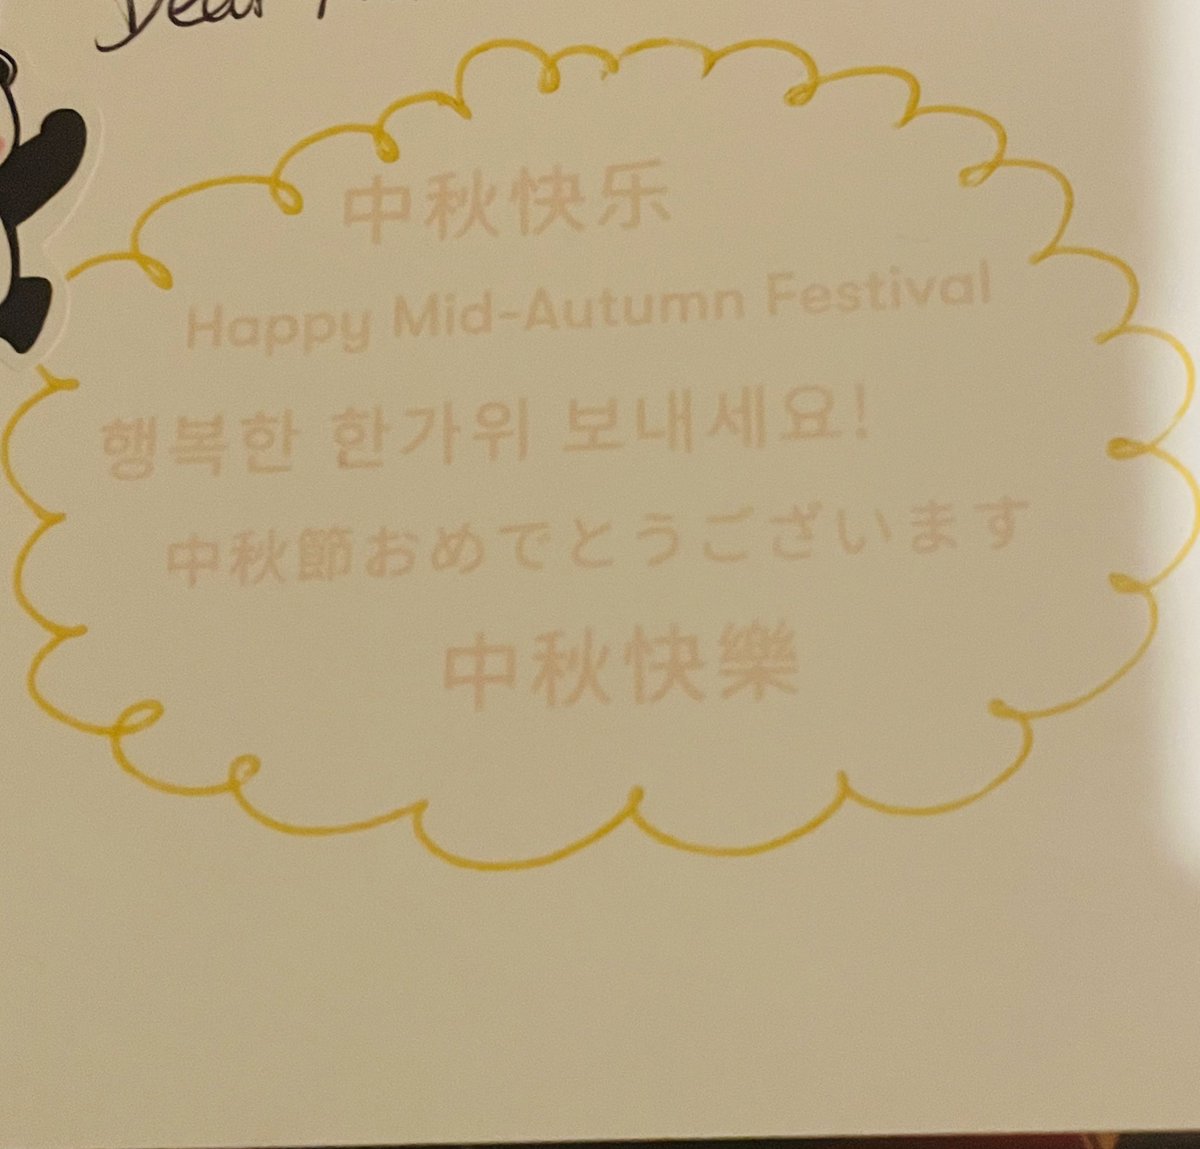 Dear
中秋快乐
Happy Mid-Autumn Festival
행복한 한가위 보내세요!
中秋節おめでとうございます
中秋快樂